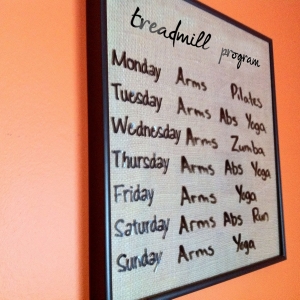 treadmill program
Monday Arms Pilates
Tuesday Arms Abs Yoga
Wednesday Arms Zumba
Thursday Arms Abs Yoga
Friday Arms Yoga
Saturday Arms Abs Run
Sunday Arms Yoga